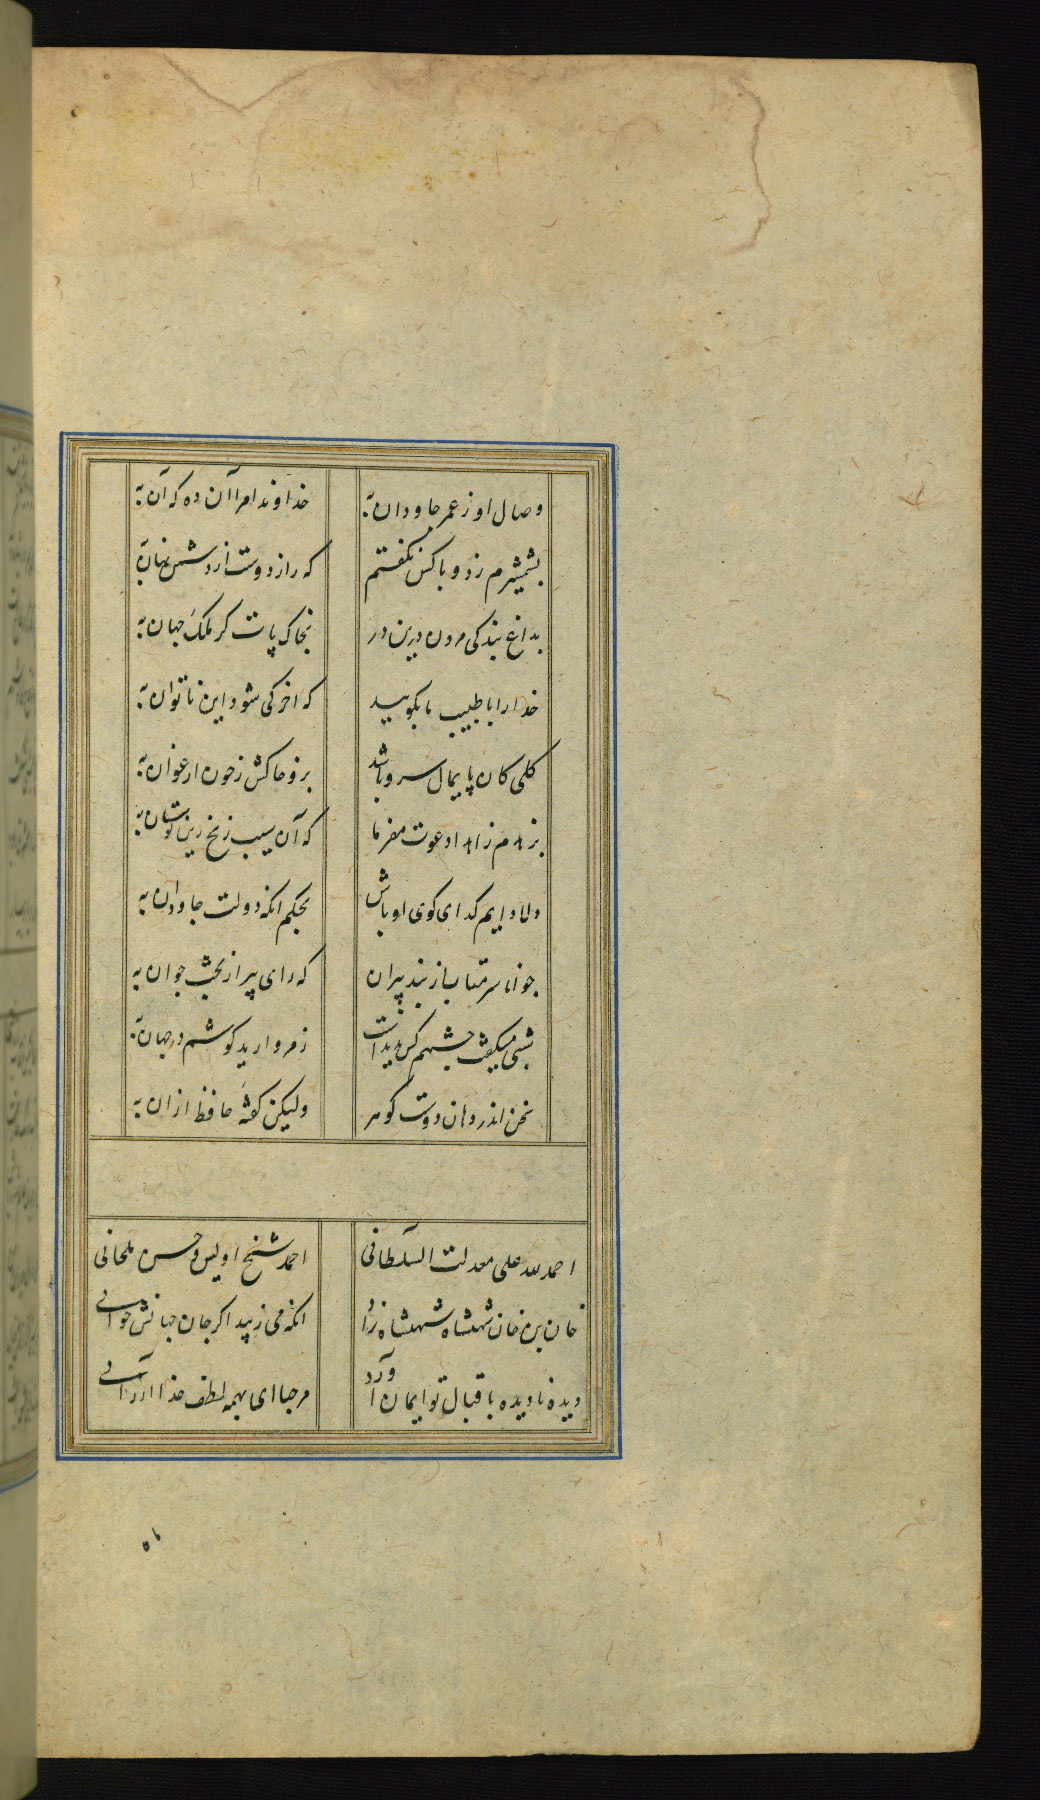 وصال او ز عمر جاودان به خداوندا مرا آن ده که آن به
بشمشیرم زد و با کس نگفتم که راز دوست از دشمن نهان به
بداغ بندکی مردن درین در بخاک پات کز ملک جهان به
خدا را با طبیب ما بکویید که اخر کی شود این ناتوان به
کلی کان پایمال سرو ما شد بود خاکش ز خون ارغوان به
بزهدم زاهدا دعوت مفرما که آن سیب زنخ زین بوستان به
دلا دایم کدای کوی او باش بحکم انکه دولت جاودان به
جوانا سر متاب از پند پیران که رای پیر از بخت جوان به
شبی میکفت چشم کس ندیدست ز مروارید کوشم در جهان به
سخن اندر دهان دوست کوهر ولیکن کفته حافظ ازان به
احمد لله علی معدلت السلطانی احمد شیخ اویس حسن یلخانی
خان بن خان شهنشاه شهنشاه نژاد انکه می زیبد اکر جان جهانش خوانی
دیده نادیده باقبال تو ایمان آورد مرحبا ای بهمه لطف خدا ارزانی